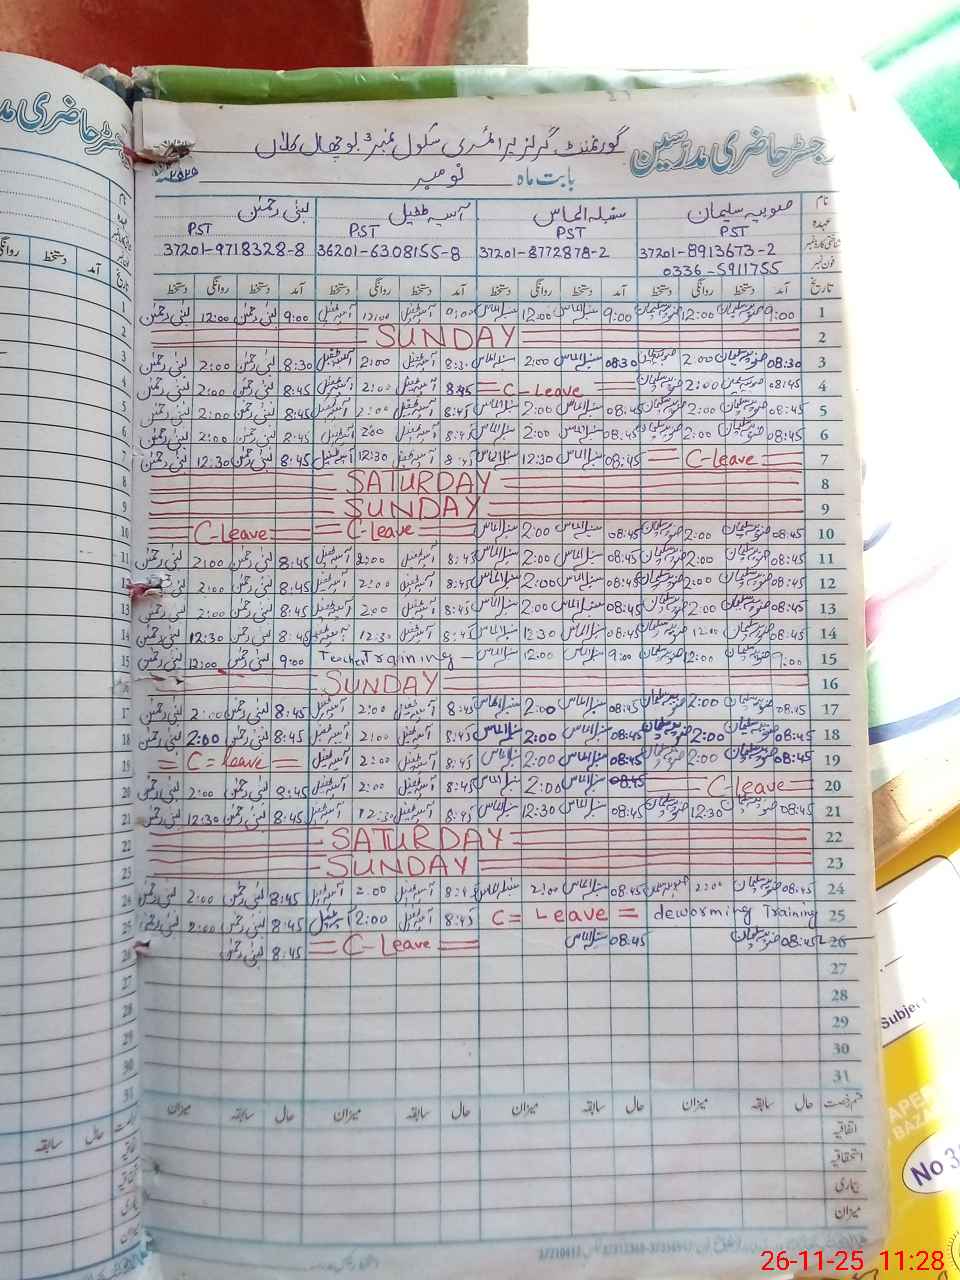 رجسٹر حاضری مدرسین گورنمنٹ گرلز پرائمری سکول نمبر 3 بوچھال کلاں
بابت ماہ نومبر
نام صوبیہ سلیمان سنبلہ الماس آسیہ طفیل لبنیٰ رحمٰن
عہدہ PST PST PST PST
37201-8913673-2 37201-8772878-2 36201-6308155-8 37201-9718328-8
فون نمبر 0336-5911755
تاریخ آمد دستخط روانگی دستخط آمد دستخط روانگی دستخط آمد دستخط روانگی دستخط آمد دستخط روانگی دستخط
1 9:00 صوبیہ سلیمان 12:00 صوبیہ سلیمان 9:00 سنبلہ الماس 12:00 سنبلہ الماس 9:00 آسیہ طفیل 12:00 آسیہ طفیل 9:00 لبنیٰ رحمٰن 12:00 لبنیٰ رحمٰن
2 SUNDAY
3 08:30 صوبیہ سلیمان 2:00 صوبیہ سلیمان 08:30 سنبلہ الماس 2:00 سنبلہ الماس 8:30 آسیہ طفیل 2:00 آسیہ طفیل 8:30 لبنیٰ رحمٰن 2:00 لبنیٰ رحمٰن
4 08:45 صوبیہ سلیمان 2:00 صوبیہ سلیمان C-Leave 8:45 آسیہ طفیل 2:00 آسیہ طفیل 8:45 لبنیٰ رحمٰن 2:00 لبنیٰ رحمٰن
5 08:45 صوبیہ سلیمان 2:00 صوبیہ سلیمان 08:45 سنبلہ الماس 2:00 سنبلہ الماس 8:45 آسیہ طفیل 2:00 آسیہ طفیل 8:45 لبنیٰ رحمٰن 2:00 لبنیٰ رحمٰن
6 08:45 صوبیہ سلیمان 2:00 صوبیہ سلیمان 08:45 سنبلہ الماس 2:00 سنبلہ الماس 8:45 آسیہ طفیل 2:00 آسیہ طفیل 8:45 لبنیٰ رحمٰن 2:00 لبنیٰ رحمٰن
7 C-Leave 08:45 سنبلہ الماس 12:30 سنبلہ الماس 8:45 آسیہ طفیل 12:30 آسیہ طفیل 8:45 لبنیٰ رحمٰن 12:30 لبنیٰ رحمٰن
8 SATURDAY
9 SUNDAY
10 08:45 صوبیہ سلیمان 2:00 صوبیہ سلیمان 08:45 سنبلہ الماس 2:00 سنبلہ الماس C-Leave C-Leave
11 08:45 صوبیہ سلیمان 2:00 صوبیہ سلیمان 08:45 سنبلہ الماس 2:00 سنبلہ الماس 8:45 آسیہ طفیل 2:00 آسیہ طفیل 8:45 لبنیٰ رحمٰن 2:00 لبنیٰ رحمٰن
12 08:45 صوبیہ سلیمان 2:00 صوبیہ سلیمان 08:45 سنبلہ الماس 2:00 سنبلہ الماس 8:45 آسیہ طفیل 2:00 آسیہ طفیل 8:45 لبنیٰ رحمٰن 2:00 لبنیٰ رحمٰن
13 08:45 صوبیہ سلیمان 2:00 صوبیہ سلیمان 08:45 سنبلہ الماس 2:00 سنبلہ الماس 8:45 آسیہ طفیل 2:00 آسیہ طفیل 8:45 لبنیٰ رحمٰن 2:00 لبنیٰ رحمٰن
14 08:45 صوبیہ سلیمان صوبیہ سلیمان 08:45 سنبلہ الماس 12:30 سنبلہ الماس 8:45 آسیہ طفیل 12:30 آسیہ طفیل 8:45 لبنیٰ رحمٰن 12:30 لبنیٰ رحمٰن
15 9:00 صوبیہ سلیمان 12:00 صوبیہ سلیمان 9:00 سنبلہ الماس 12:00 سنبلہ الماس Teacher Training 9:00 لبنیٰ رحمٰن 12:00 لبنیٰ رحمٰن
16 SUNDAY
17 08:45 صوبیہ سلیمان 2:00 صوبیہ سلیمان 08:45 سنبلہ الماس 2:00 سنبلہ الماس 8:45 آسیہ طفیل 2:00 آسیہ طفیل 8:45 لبنیٰ رحمٰن 2:00 لبنیٰ رحمٰن
18 08:45 صوبیہ سلیمان 2:00 صوبیہ سلیمان 08:45 سنبلہ الماس 2:00 سنبلہ الماس 8:45 آسیہ طفیل 2:00 آسیہ طفیل 8:45 لبنیٰ رحمٰن 2:00 لبنیٰ رحمٰن
19 08:45 صوبیہ سلیمان 2:00 صوبیہ سلیمان 08:45 سنبلہ الماس 2:00 سنبلہ الماس 8:45 آسیہ طفیل 2:00 آسیہ طفیل C=Leave
20 C-Leave 08:45 سنبلہ الماس 2:00 سنبلہ الماس 8:45 آسیہ طفیل 2:00 آسیہ طفیل 8:45 لبنیٰ رحمٰن 2:00 لبنیٰ رحمٰن
21 08:45 صوبیہ سلیمان 12:30 صوبیہ سلیمان 08:45 سنبلہ الماس 12:30 سنبلہ الماس 8:45 آسیہ طفیل 12:30 آسیہ طفیل 8:45 لبنیٰ رحمٰن 12:30 لبنیٰ رحمٰن
22 SATURDAY
23 SUNDAY
24 08:45 صوبیہ سلیمان 2:00 صوبیہ سلیمان 08:45 سنبلہ الماس 2:00 سنبلہ الماس 8:45 آسیہ طفیل 2:00 آسیہ طفیل 8:45 لبنیٰ رحمٰن 2:00 لبنیٰ رحمٰن
25 deworming Training C=Leave 8:45 آسیہ طفیل 2:00 آسیہ طفیل 8:45 لبنیٰ رحمٰن 2:00 لبنیٰ رحمٰن
26 08:45 صوبیہ سلیمان 08:45 سنبلہ الماس C-Leave 8:45 لبنیٰ رحمٰن
27
28
29
30
31
قسم رخصت حال سابقہ میزان حال سابقہ میزان حال سابقہ میزان حال سابقہ میزان
اتفاقیہ
استحقاقیہ
بیماری
میزان
Subject
PAPER
BAZAR
No 3
26-11-25 11:28